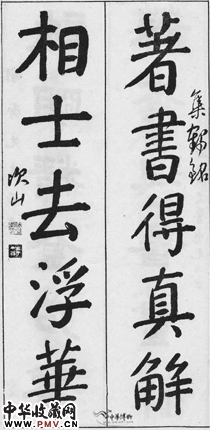 著書得真解
集鶴銘
相士去浮華
次山
中华收藏网
www.PMV.cn
中華博物